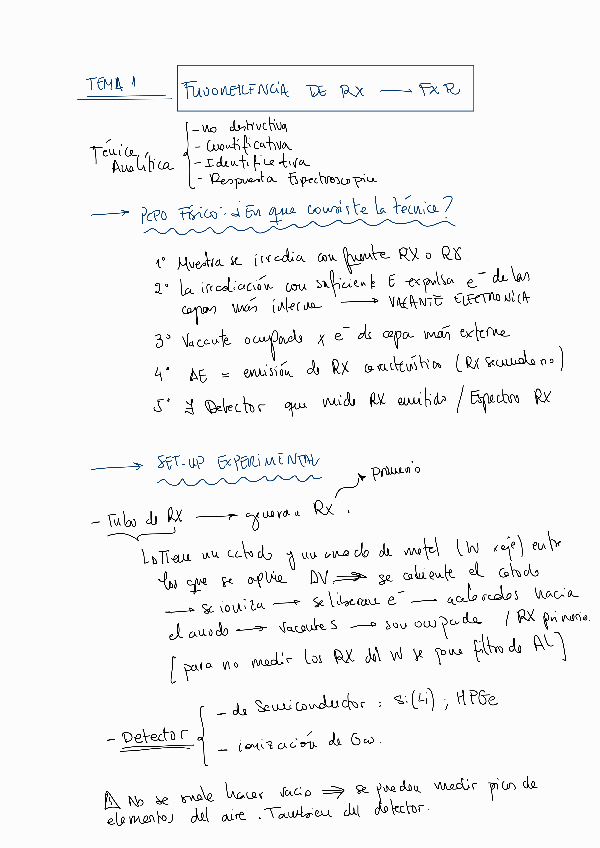 TEMA 1
FLUORESCENCIA DE RX → FXR
Técnica Analítica
- no destructiva
- Cuantificativa
- Identificativa
- Respuesta Espectroscopica
→ PCPO Físico: ¿En que consiste la técnica?
1º Muestra se irradia con fuente RX o Rγ
2º La irradiación con suficiente E expulsa e⁻ de las
capas más interna → VACANTE ELECTRONICA
3º Vacante ocupada x e⁻ de capa más externa
4º ΔE = emisión de RX característico (RX secundario)
5º ∃ Detector que mide RX emitido / Espectro RX
→ SET-UP EXPERIMENTAL
primario
- Tubo de RX → generan RX.
↳ Tiene un catodo y un anodo de metal (W eje) entre
los que se aplica ΔV ⇒ se calienta el catodo
→ se ioniza → se liberan e⁻ → acelerados hacia
el anodo → vacantes → son ocupada / RX primario.
[para no medir los RX del W se pone filtro de AL]
- Detector
- de Semiconductor: Si(Li); HPGe
- ionización de Gas.
⚠ No se suele hacer vacio ⇒ se pueden medir picos de
elementos del aire. Tambien del detector.